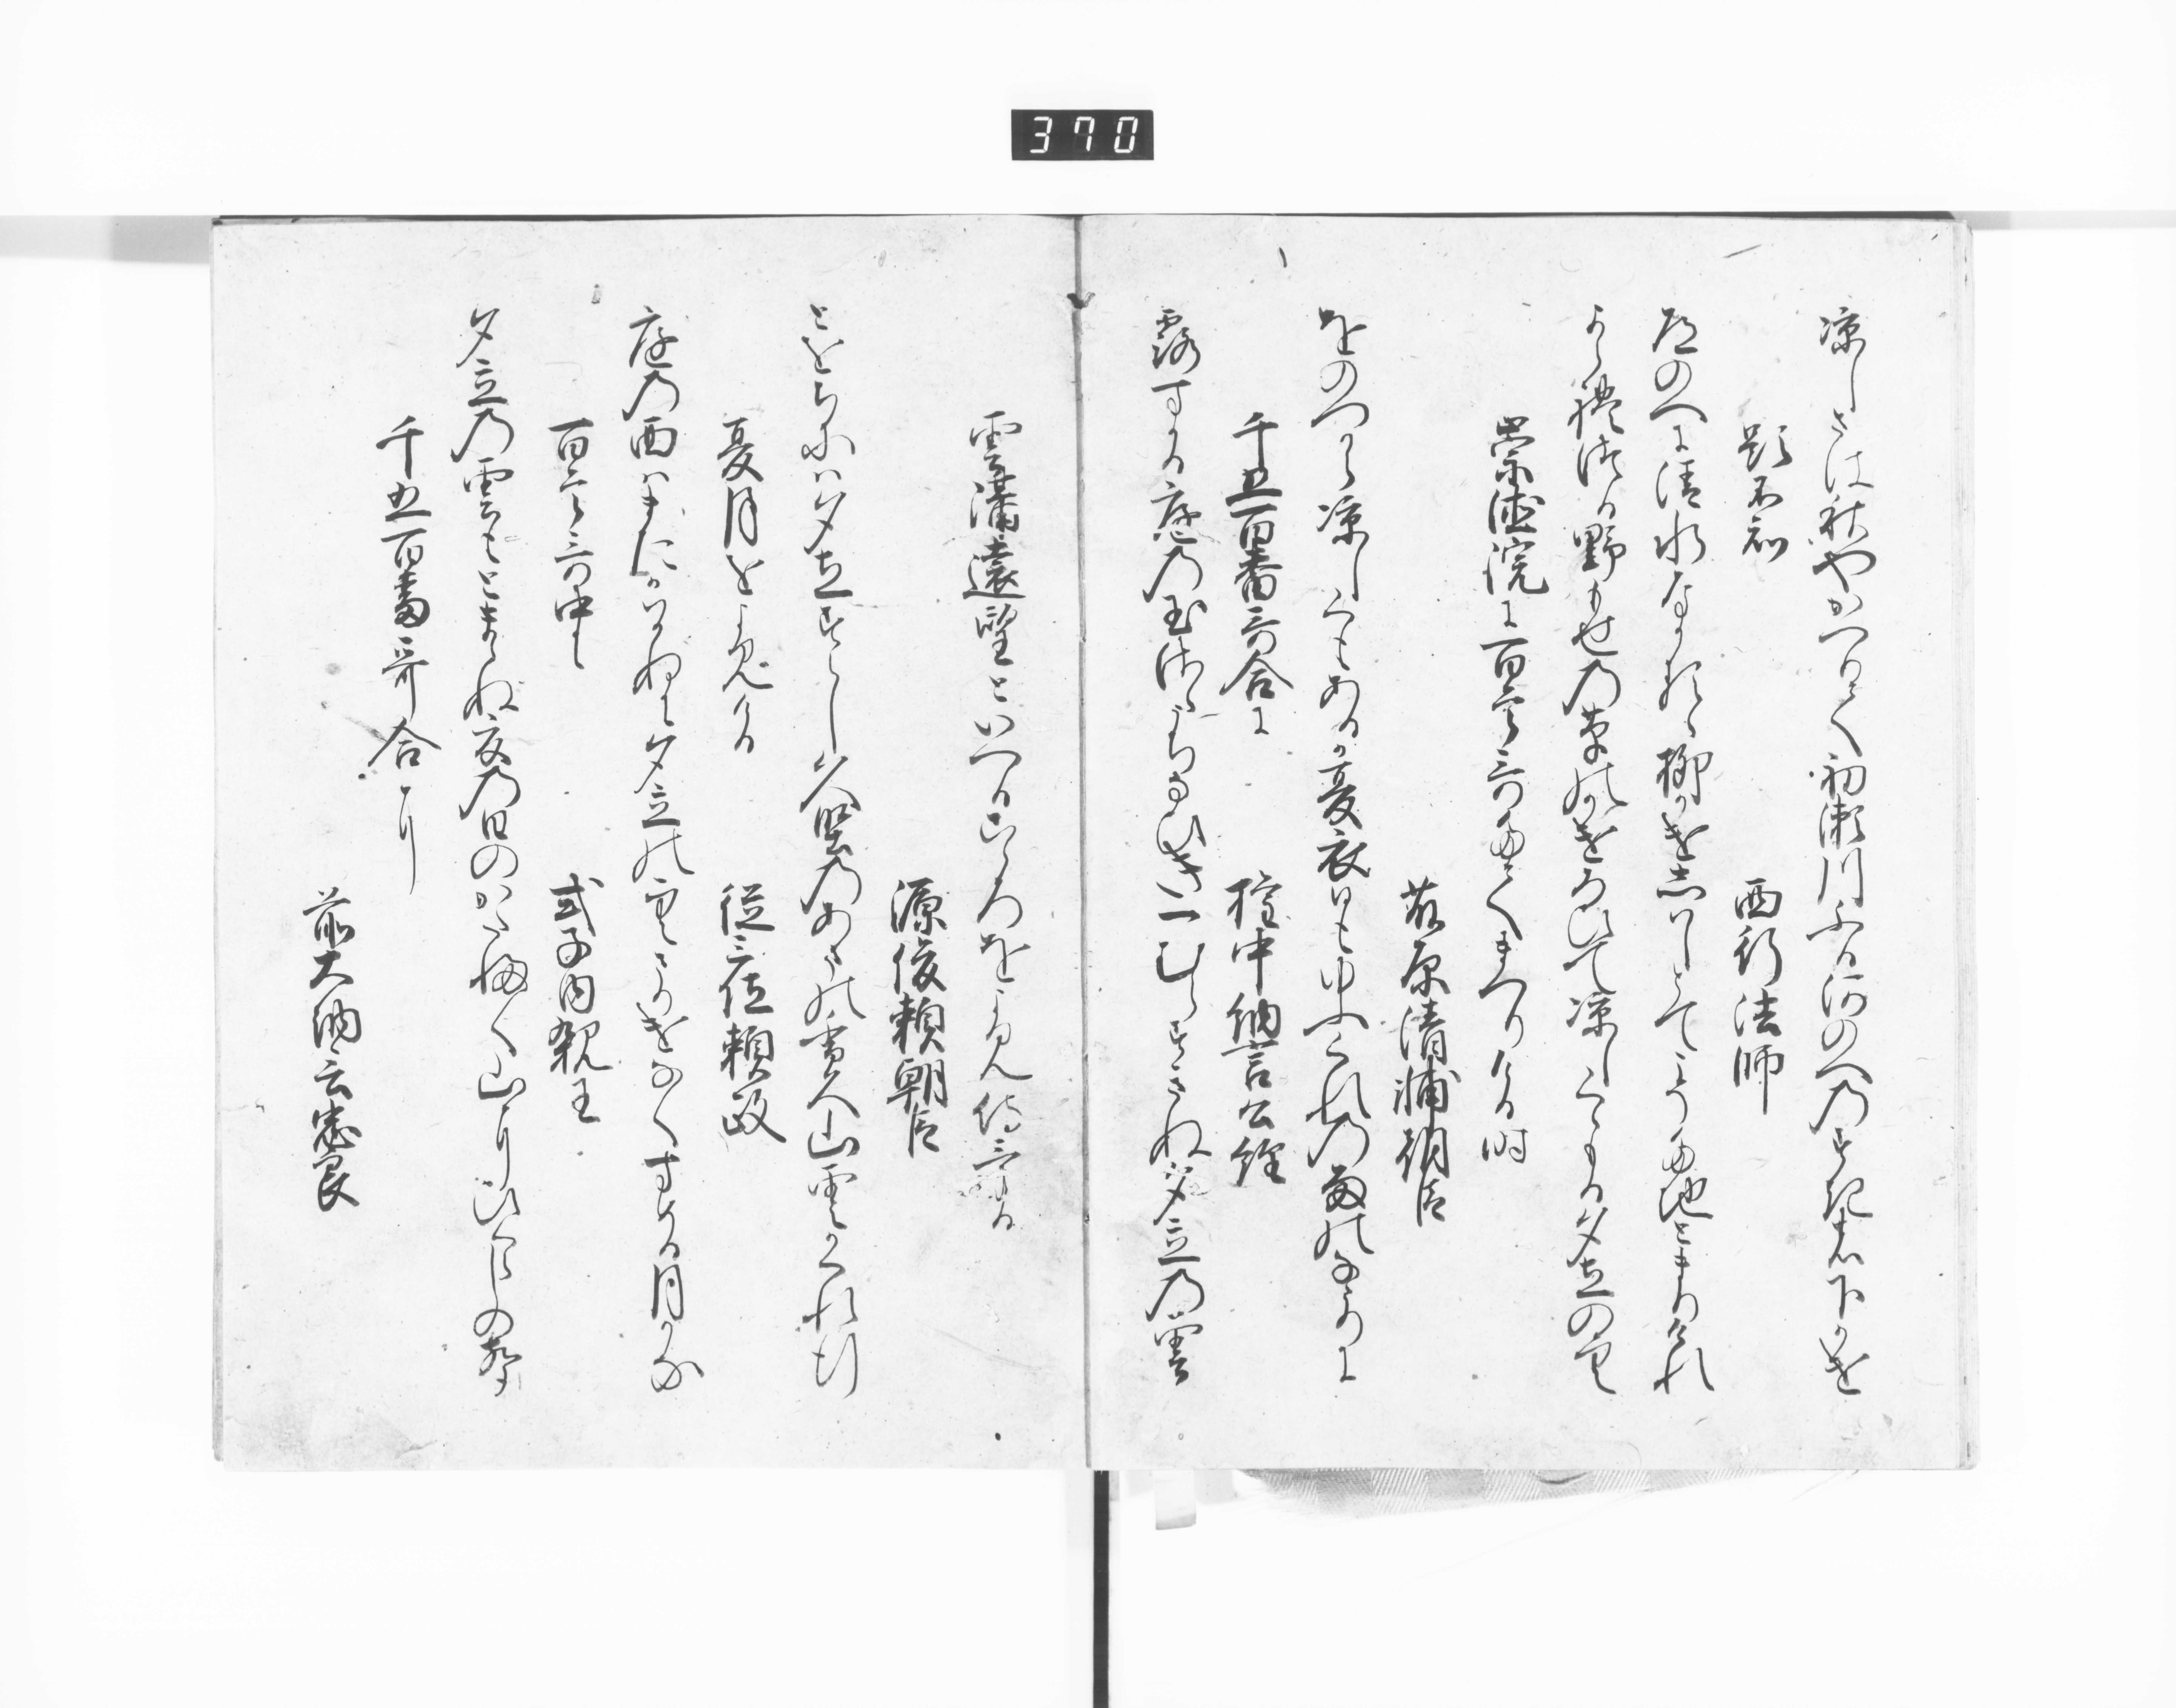 370
涼しさは秋やかへりて初瀬川ふる河のへの杉の下かけ
題不知
西行法師
道のへに清水なかるゝ柳かけ志はしとてこそ立とまりけれ
よられつる野もせの草のかけろひて涼しくくもる夕立の空
崇徳院に百首哥たてまつりける時
藤原清輔朝臣
をのつから涼しくもあるか夏衣日もゆふくれの雨のなこりに
千五百番哥合に
権中納言公経
露すかる庭の玉さゝうちなひき一むらすきぬ夕立の雲
雲隔遠望といへるこゝろをよみ侍ける
源俊頼朝臣
とをちには夕立すらし久堅のあまの香久山雲かくれ行
夏月をよめる
従三位頼政
庭の面はまたかはかぬに夕立の空さりけなくすめる月かな
百首哥中に
式子内親王
夕立の雲もとまらぬ夏の日のかたふく山にひくらしの聲
千五百番哥合に
前大納言忠良